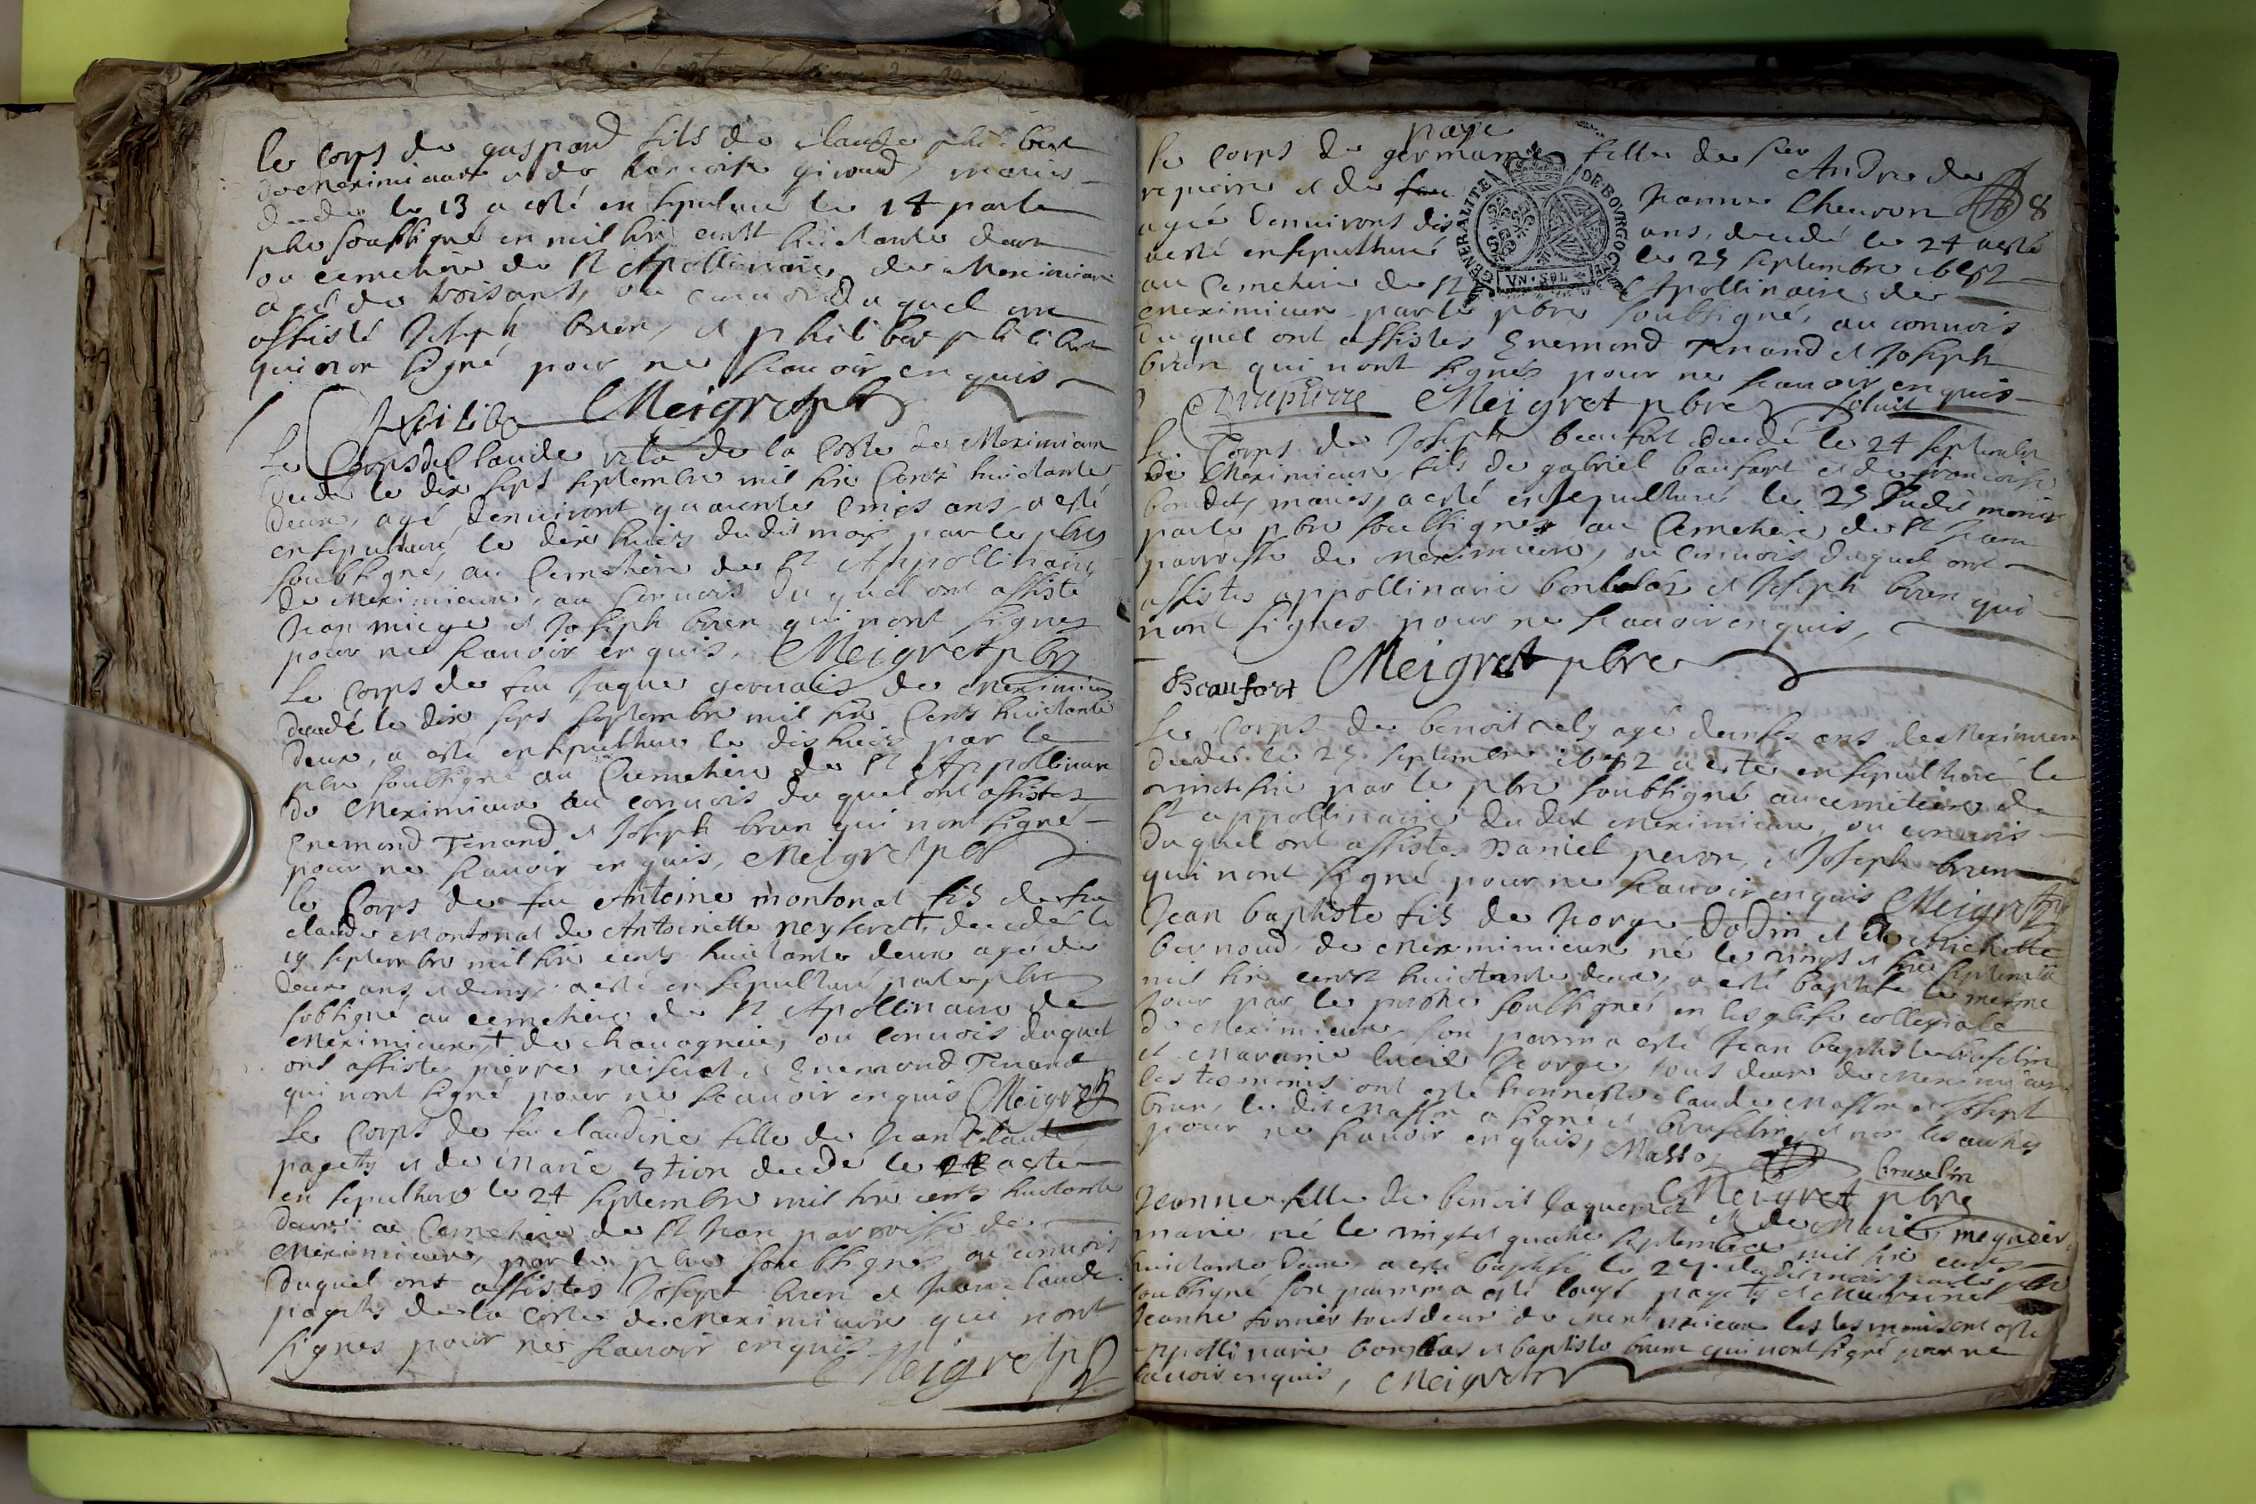 le corps de gaspard fils de claude philibert
de Meximieux et de françoise giroud, mariés
decedé le 13 a esté ensepulturé le 14 par le
pbre soubsigné en mil six centz huictante deux
au cemetiere de St Apollinaire de Meximieux
agé de trois ans, au convois duquel ont
assisté Joseph brun, et philiber philibert
qui n'on signé pour ne scavoir enquis
philiber Meigret pbre
Le Corps de Claude de la Coste de Meximieux
decedé le dix sept septembre mil six Centz huictante
deux, agé d'environt quarente Cinq ans, a esté
ensepulturé le dix huict dudit mois par le pbre
soubsigné, au Cemetiere de St Appollinaire
de Meximieux, au convois du quel ont assisté
Jean miege et Joseph brun qui n'ont signez
pour ne scavoir enquis, Meigret pbre
Le Corps de feu Jaques gervais de Meximieux
decedé le dix sept septembre mil six Centz huictante
deux, a esté ensepulturé le dix huict par le
pbre soubsigné au Cemetiere de St Appollinaire
de Meximieux au convois du quel ont assistez
Enemond Tenand et Joseph brun qui n'ont signé
pour ne scavoir enquis, Meigret pbre
le Corps de feu Antoine montonat fis de feu
claude Montonat de Antoinette neyseret, decedé le
19 septembre mil six cents huictante deux agé de
deux ans et demy, a esté ensepulturé par le pbre
sobsigné au cemetiere de St Apollinaire de
Meximieux + de chavagnieu, au convois duquel
ont assistez pierre neiseret, et Enemond Tenand
qui n'ont signé pour ne scavoir enquis Meigret
Le Corps de feu claudine fille de Jean Claude
pagets et de Marie decedé le a esté
ensepulturé le 24 septembre mil six cents huictante
deux au Cemetiere de St Jean parroisse de
Meximieux, par le pbre soubsigné au convois
duquel ont assistes Joseph brun et Jean claude
pagets de la coste de Meximieux qui n'ont
signes pour ne scavoir enquis
Meigret pbre
paye
le Corps de germaine fille de sieur André de
repierre et de Jeanne Chevron 8
agée d'environs dix ans, decedé le 24 a esté
ensepulturé le 25 septembre 1682
au Cemetiere de St Apollinaire de
Meximieux par le pbre soubsigné, au convois
duquel ont assistes Enemond Tenand et Joseph
brun qui n'ont signés pour ne scavoir enquis
Drepierre Meigret pbre
GENERALITE DE BOVRGOGNE
VN. SOL
Le Corps de Joseph beaufort decedé le 24 septembre
de Meximieux, fils de gabriel baufort et de françoise
mariés, a esté ensepulturé le 25 dudit mois
par le pbre soubsigné au Cemetiere de St Jean
parroisse de Meximieux, au convois duquel ont
assistes appollinaire et Joseph brun qui
n'ont signes pour ne scavoir enquis,
Beaufort Meigret pbre
Le Corps de benoit agé ans de Meximieux
decedé le 25 septembre 1682 a esté ensepulturé le
vinct six par le pbre soubsigné au cemetiere de
St appollinaire dudit Meximieux, au convois
duquel ont assistez Daniel peron, et Joseph brun
qui n'ont signé pour ne scavoir enquis Meigret
Jean baptiste fils de Jorge Dodin et de Michelle
bernoud de Meximieux né le vingt et six septembre
mil six centz huictante deux, a esté baptisé le mesme
jour par le pbre soubsigné en l'esglise collegiale
de Meximieux son parrin a esté Jean baptiste bruselin
et marraine lucie Jeorge, tous deux de Meximieux
les temoins ont esté honneste claude Masson et Joseph
brun, le dit Masson a signé et bruselin, et non les autres
pour ne scavoir enquis, Masson
bruselin
Meigret pbre
Jeanne fille de benoit et de Marie
marie né le vingt et quatre septembre mil six cents
huictante deux a esté baptisé le 27 dudit mois par le pbre
soubsigné son parrin a esté Louys pagets et marrine
Jeanne fornier tous deux de Meximieux les tesmoins ont esté
appollinaire et baptiste brun qui n'ont signé pour ne
scavoir enquis, Meigret